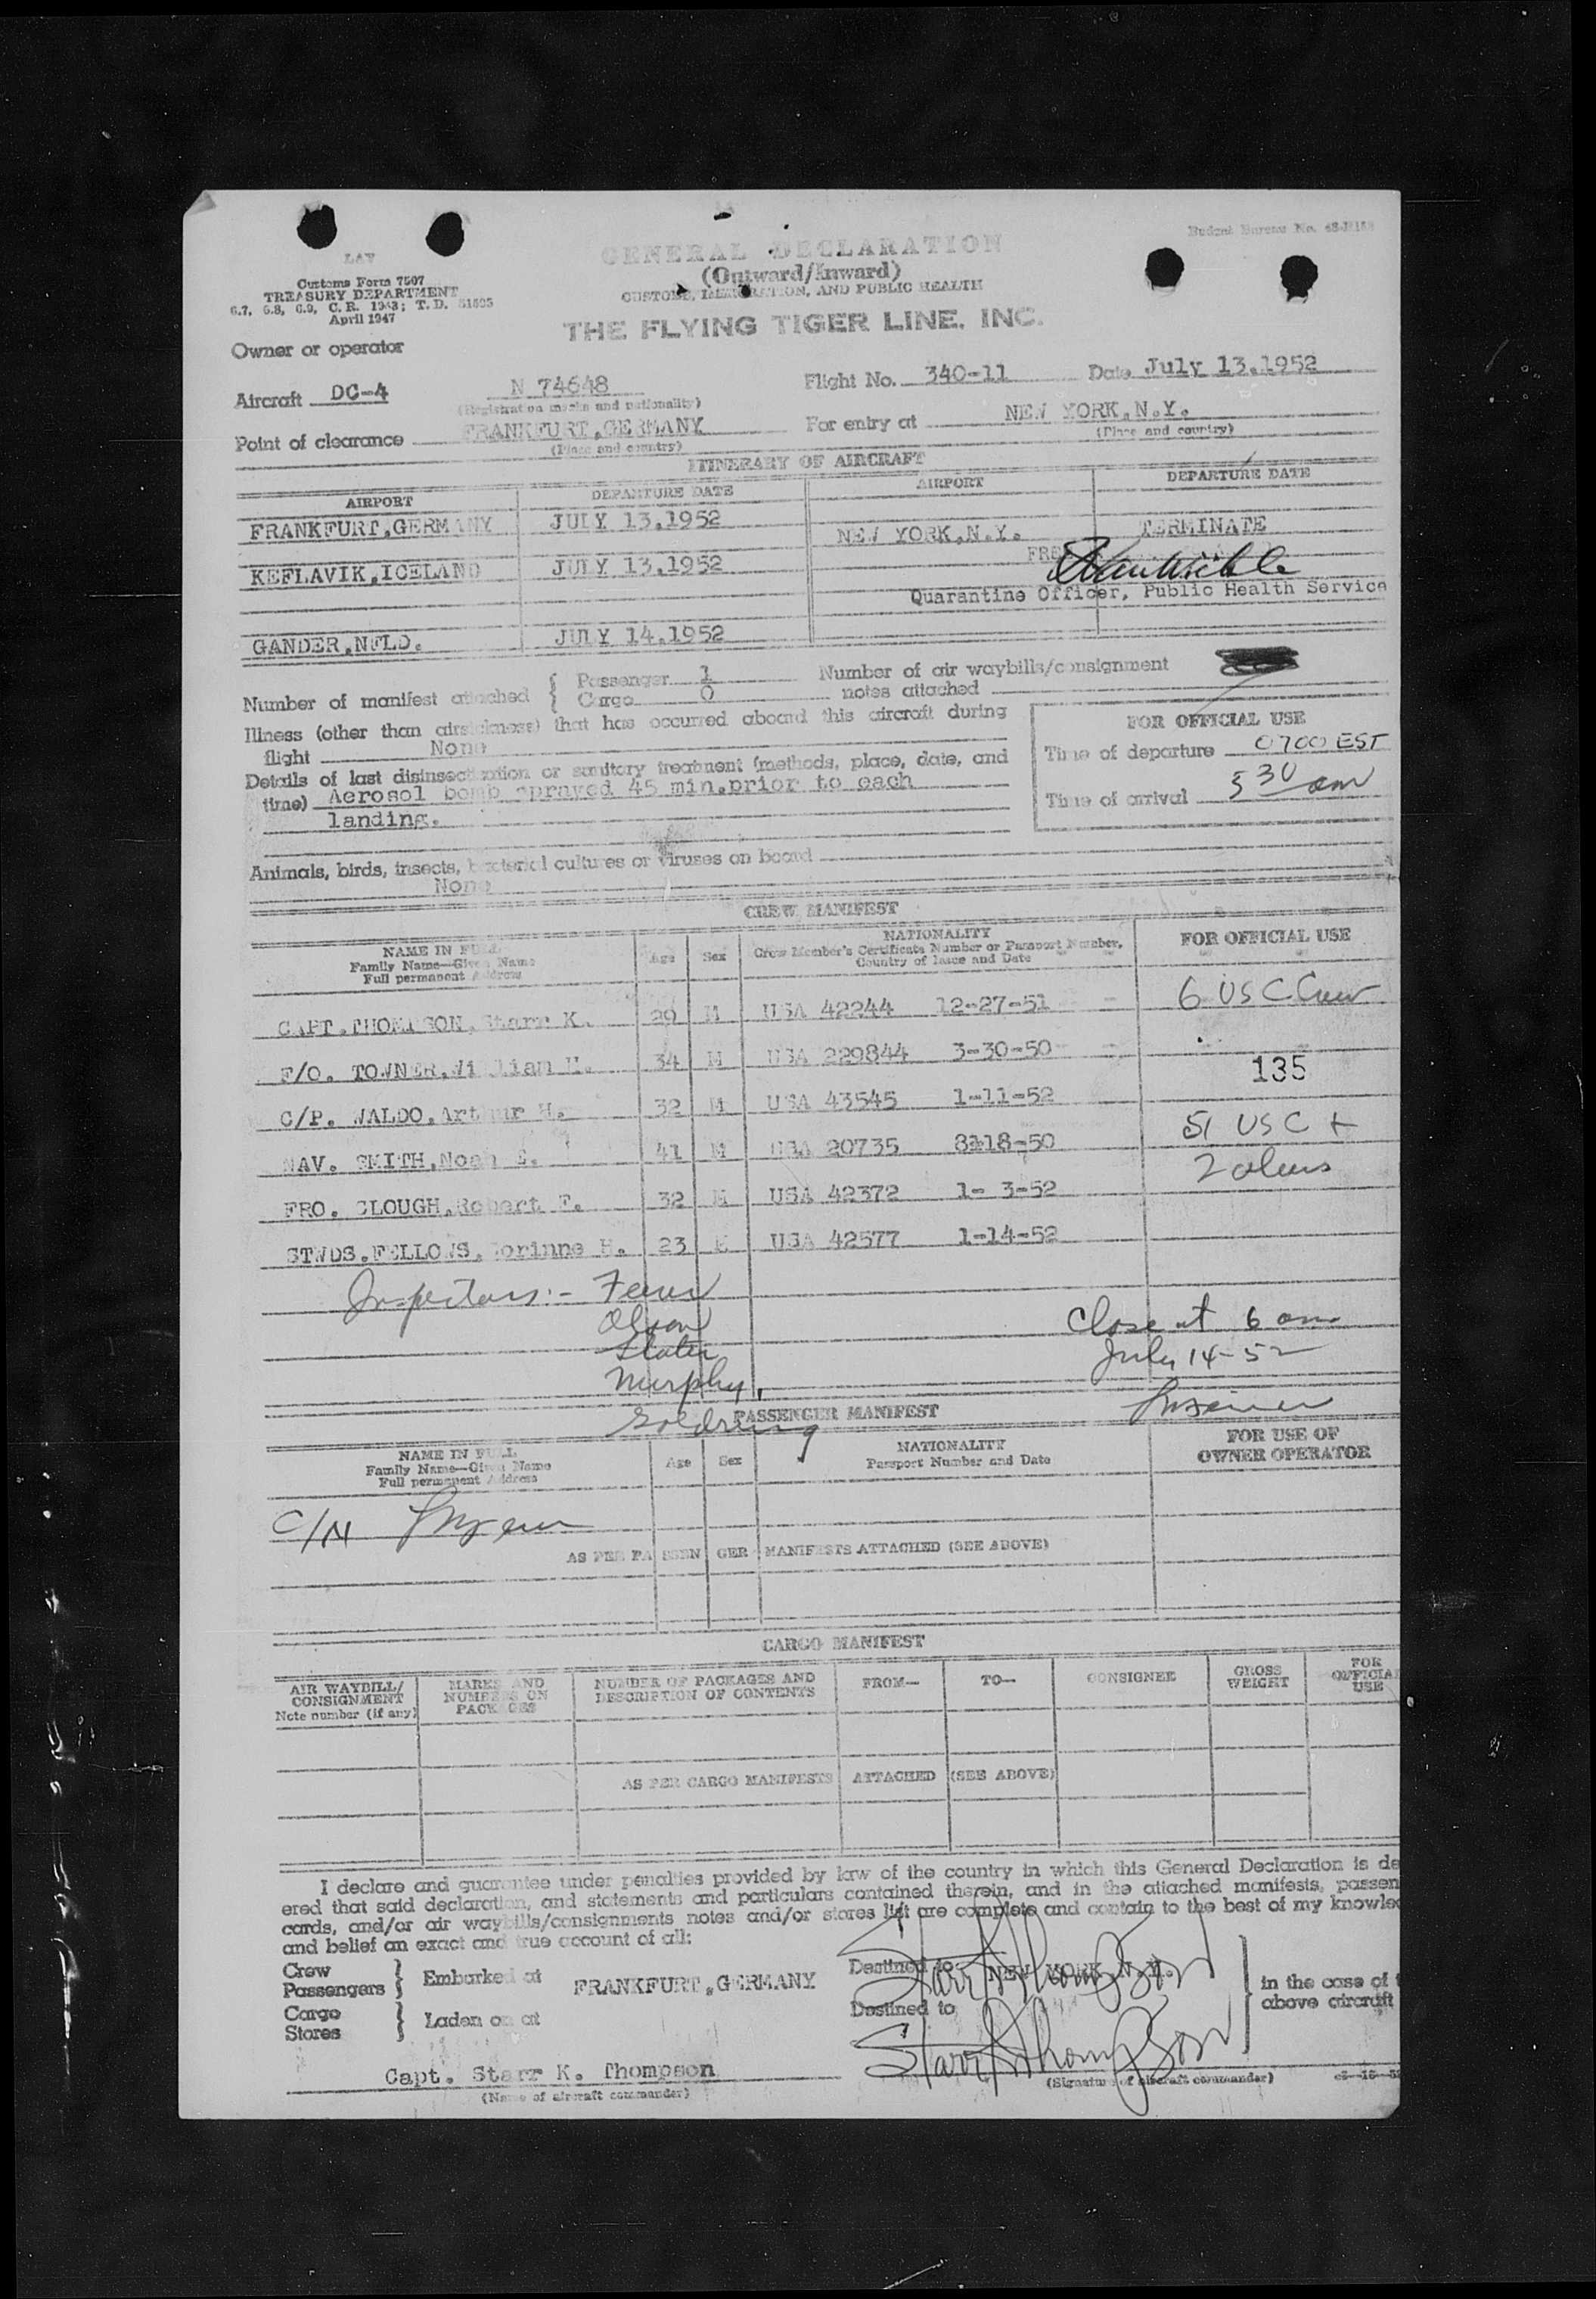 Budget Bureau No.
LAV
GENERAL DECLARATION
(Outward/Inward)
Customs Form 7507
TREASURY DEPARTMENT
CUSTOMS, IMMIGRATION, AND PUBLIC HEALTH
6.7, 6.8, 6.9, C. R. 1943; T. D. 51605
April 1947
THE FLYING TIGER LINE, INC.
Owner or operator
Aircraft DC-4 N 74648 Flight No. 340-11 Date July 13.1952
(Registration marks and nationality)
Point of clearance FRANKFURT,GERMANY For entry at NEW YORK,N.Y.
(Place and country) (Place and country)
ITINERARY OF AIRCRAFT
AIRPORT DEPARTURE DATE AIRPORT DEPARTURE DATE
FRANKFURT,GERMANY JULY 13.1952 NEW YORK,N.Y. TERMINATE
KEFLAVIK,ICELAND JULY 13.1952
Quarantine Officer, Public Health Service
GANDER,NFLD. JULY 14.1952
Number of manifest attached { Passenger 1 Number of air waybills/consignment
Cargo 0 notes attached
Illness (other than airsickness) that has occurred aboard this aircraft during
flight None
FOR OFFICIAL USE
Time of departure 0700 EST
Details of last disinsectization or sanitary treatment (methods, place, date, and
time) Aerosol bomb sprayed 45 min.prior to each
landing.
Time of arrival 530 am
Animals, birds, insects, bacterial cultures or viruses on board
None
CREW MANIFEST
NAME IN FULL Age Sex NATIONALITY FOR OFFICIAL USE
Family Name—Given Name Crew Member's Certificate Number or Passport Number,
Full permanent Address Country of Issue and Date
CAPT.THOMPSON,Starr K. 29 M USA 42244 12-27-51 6 USC Crew
F/O. TOWNER,William H. 34 M USA 229844 3-30-50
135
C/P. WALDO,Arthur H. 32 M USA 43545 1-11-52
51 USC +
NAV. SMITH,Noah E. 41 M USA 20735 8-18-50
2 aliens
FRO. CLOUGH,Robert F. 32 M USA 42372 1- 3-52
STWDS.FELLOWS,Corinne H. 23 F USA 42577 1-14-52
Inspectors:-
Olson
Slater
Murphy,
Goldring
Close at 6 am
July 14-52
PASSENGER MANIFEST
NAME IN FULL Age Sex NATIONALITY FOR USE OF
Family Name—Given Name Passport Number and Date OWNER OPERATOR
Full permanent Address
AS PER PASSENGER MANIFESTS ATTACHED (SEE ABOVE)
CARGO MANIFEST
AIR WAYBILL/ MARKS AND NUMBER OF PACKAGES AND FROM— TO— CONSIGNEE GROSS FOR
CONSIGNMENT NUMBERS ON DESCRIPTION OF CONTENTS WEIGHT OFFICIAL
Note number (if any) PACKAGES USE
AS PER CARGO MANIFESTS ATTACHED (SEE ABOVE)
I declare and guarantee under penalties provided by law of the country in which this General Declaration is de
ered that said declaration, and statements and particulars contained therein, and in the attached manifests, passen
cards, and/or air waybills/consignments notes and/or stores list are complete and contain to the best of my knowled
and belief an exact and true account of all:
Crew
Passengers } Embarked at FRANKFURT,GERMANY Destined to NEW YORK, N.Y. in the case of
above aircraft
Cargo
Stores } Laden on at Destined to
Starr K Thompson
Starr K Thompson
Capt. Starr K. Thompson
(Name of aircraft commander) (Signature of aircraft commander)